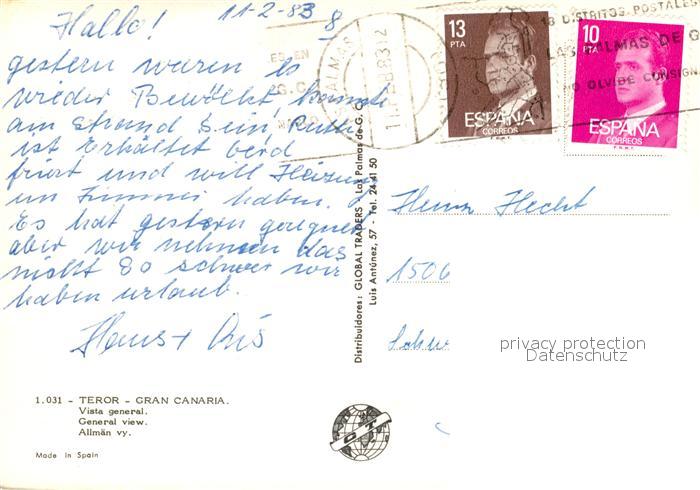 11-2-83 8
Hallo!
gestern waren es
wieder Bewölkt, konnte
am Strand sein, Ruth
ist Erkältet
friert und will Heizung
im Zimmer haben.
Es hat gestern geregnet
aber wir nehmen das
nicht so schwer wir
haben urlaub.
Hans +
1.031 - TEROR - GRAN CANARIA.
Vista general.
General view.
Allmän vy.
Made in Spain
Distribuidores: GLOBAL TRADERS - Las Palmas de G. C.
Luis Antúnez, 57 - Tel. 24 41 50
13
PTA
ESPAÑA
CORREOS
F.N.M.T.
10
PTA
ESPAÑA
CORREOS
F.N.M.T.
DISTRITOS POSTALES
LAS PALMAS DE G
NO OLVIDE CONSIGN
Heinz Hecht
1506
privacy protection
Datenschutz